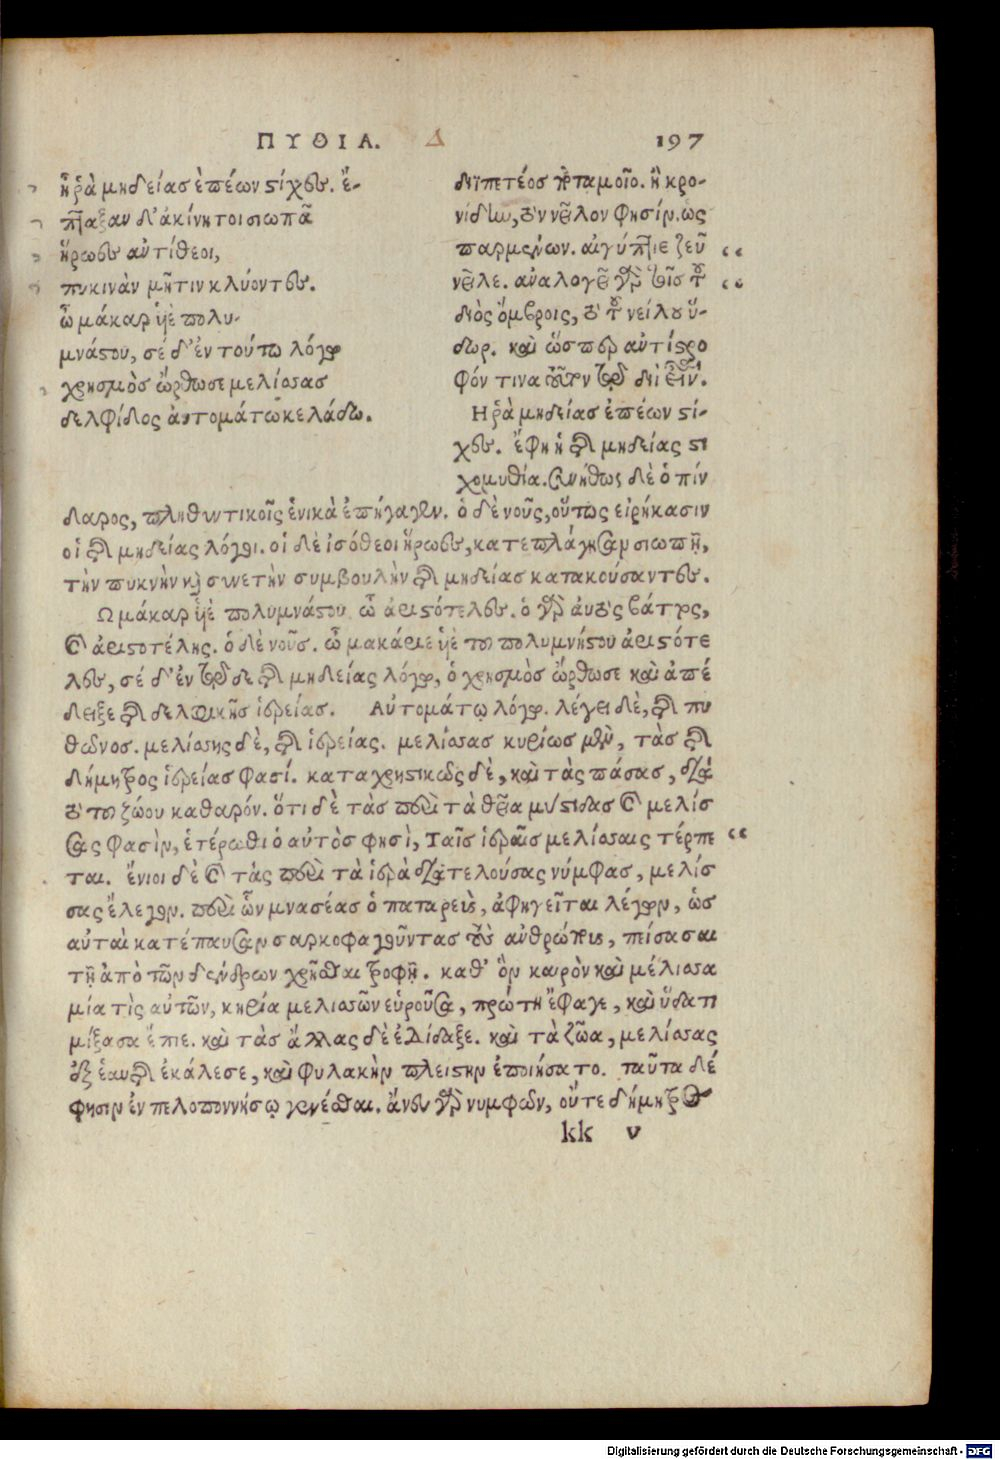 ΠΥΘΙΑ. Δ 197
ἦ ῥὰ μηδείας ἐπέων στίχες. ἔ-
πταξαν δ' ἀκίνητοι σιωπᾶ
ἥρωες ἀντίθεοι,
πυκινὰν μῆτιν κλύοντες.
ὦ μάκαρ ὑιὲ πολυ-
μνάστου, σέ δ' ἐν τούτω λόγῳ
χρησμὸς ὤρθωσε μελίσσας
δελφίδος ἀυτομάτω κελάδω.
διϊπετέος ποταμοῖο. ἢ κρο-
νίδην, τὸν νεῖλον φησίν. ὡς
παρμένων. αἰγύπτιε ζεῦ “
νεῖλε. ἀναλογεῖ γὰρ τοῖς τοῦ “
διὸς ὄμβροις, τὸ τοῦ νείλου ὕ-
δωρ. καὶ ὥσπερ ἀντίστρο
φόν τινα τοῦτον τῷ διὶ εἶναι.
Ηῥὰ μηδείας ἐπέων στί-
χες. ἔφη ἡ τῆς μηδείας στι
χομυθία. συνήθως δὲ ὁ πίν
δαρος, πληθυντικοῖς ἑνικὰ ἐπήγαγεν. ὁ δὲ νοῦς, οὕτως εἰρήκασιν
οἱ τῆς μηδείας λόγοι. οἱ δὲ ἰσόθεοι ἥρωες, κατεπλάγησαν σιωπῇ,
τὴν πυκνὴν καὶ συνετὴν συμβουλὴν τῆς μηδείας κατακούσαντες.
Ω μάκαρ ὑιὲ πολυμνάστου ὦ ἀριστότελες. ὁ γὰρ ἀυτὸς βάττος,
καὶ ἀριστοτέλης. ὁ δὲ νοῦς. ὦ μακάριε ὑιὲ του πολυμνήστου ἀριστότε
λες, σέ δ' ἐν τῷ δε τῆς μηδείας λόγῳ, ὁ χρησμὸς ὤρθωσε καὶ ἀπέ
δειξε τῆς δελφικῆς ἱερείας. Αὐτομάτῳ λόγῳ. λέγει δὲ, τῆς πυ
θῶνος. μελίσσης δὲ, τῆς ἱερείας. μελίσσας κυρίως μὲν, τὰς τῆς
δήμητρος ἱερείας φασί. καταχρηστικῶς δὲ, καὶ τὰς πάσας, διὰ
τὸ του ζώου καθαρόν. ὅτι δὲ τὰς περὶ τὰ θεῖα μύστιδας καὶ μελίσ
σας φασὶν, ἑτέρωθι ὁ αὐτὸς φησὶ, Ταῖς ἱεραῖς μελίσσαις τέρπε “
ται. ἔνιοι δὲ καὶ τὰς περὶ τὰ ἱερὰ διατελούσας νύμφας, μελίσ
σας ἔλεγον. περὶ ὧν μνασέας ὁ παταρεὺς, ἀφηγεῖται λέγων, ὡς
αὐταὶ κατέπαυσαν σαρκοφαγοῦντας τοὺς ἀνθρώπους, πείσασαι
τῇ ἀπὸ τῶν δένδρων χρῆσθαι τροφῇ. καθ' ὃν καιρὸν καὶ μέλισσα
μία τὶς αὐτῶν, κηρία μελισσῶν εὑροῦσα, πρώτη ἔφαγε, καὶ ὕδατι
μίξασα ἔπιε. καὶ τὰς ἄλλας δὲ ἐδίδαξε. καὶ τὰ ζῶα, μελίσσας
ἐξ ἑαυτῆς ἐκάλεσε, καὶ φυλακὴν πλείστην ἐποιήσατο. ταῦτα δέ
φησιν ἐν πελοποννήσῳ γενέσθαι. ἄνευ γὰρ νυμφῶν, οὔτε δήμητρος
kk v
Digitalisierung gefördert durch die Deutsche Forschungsgemeinschaft - DFG